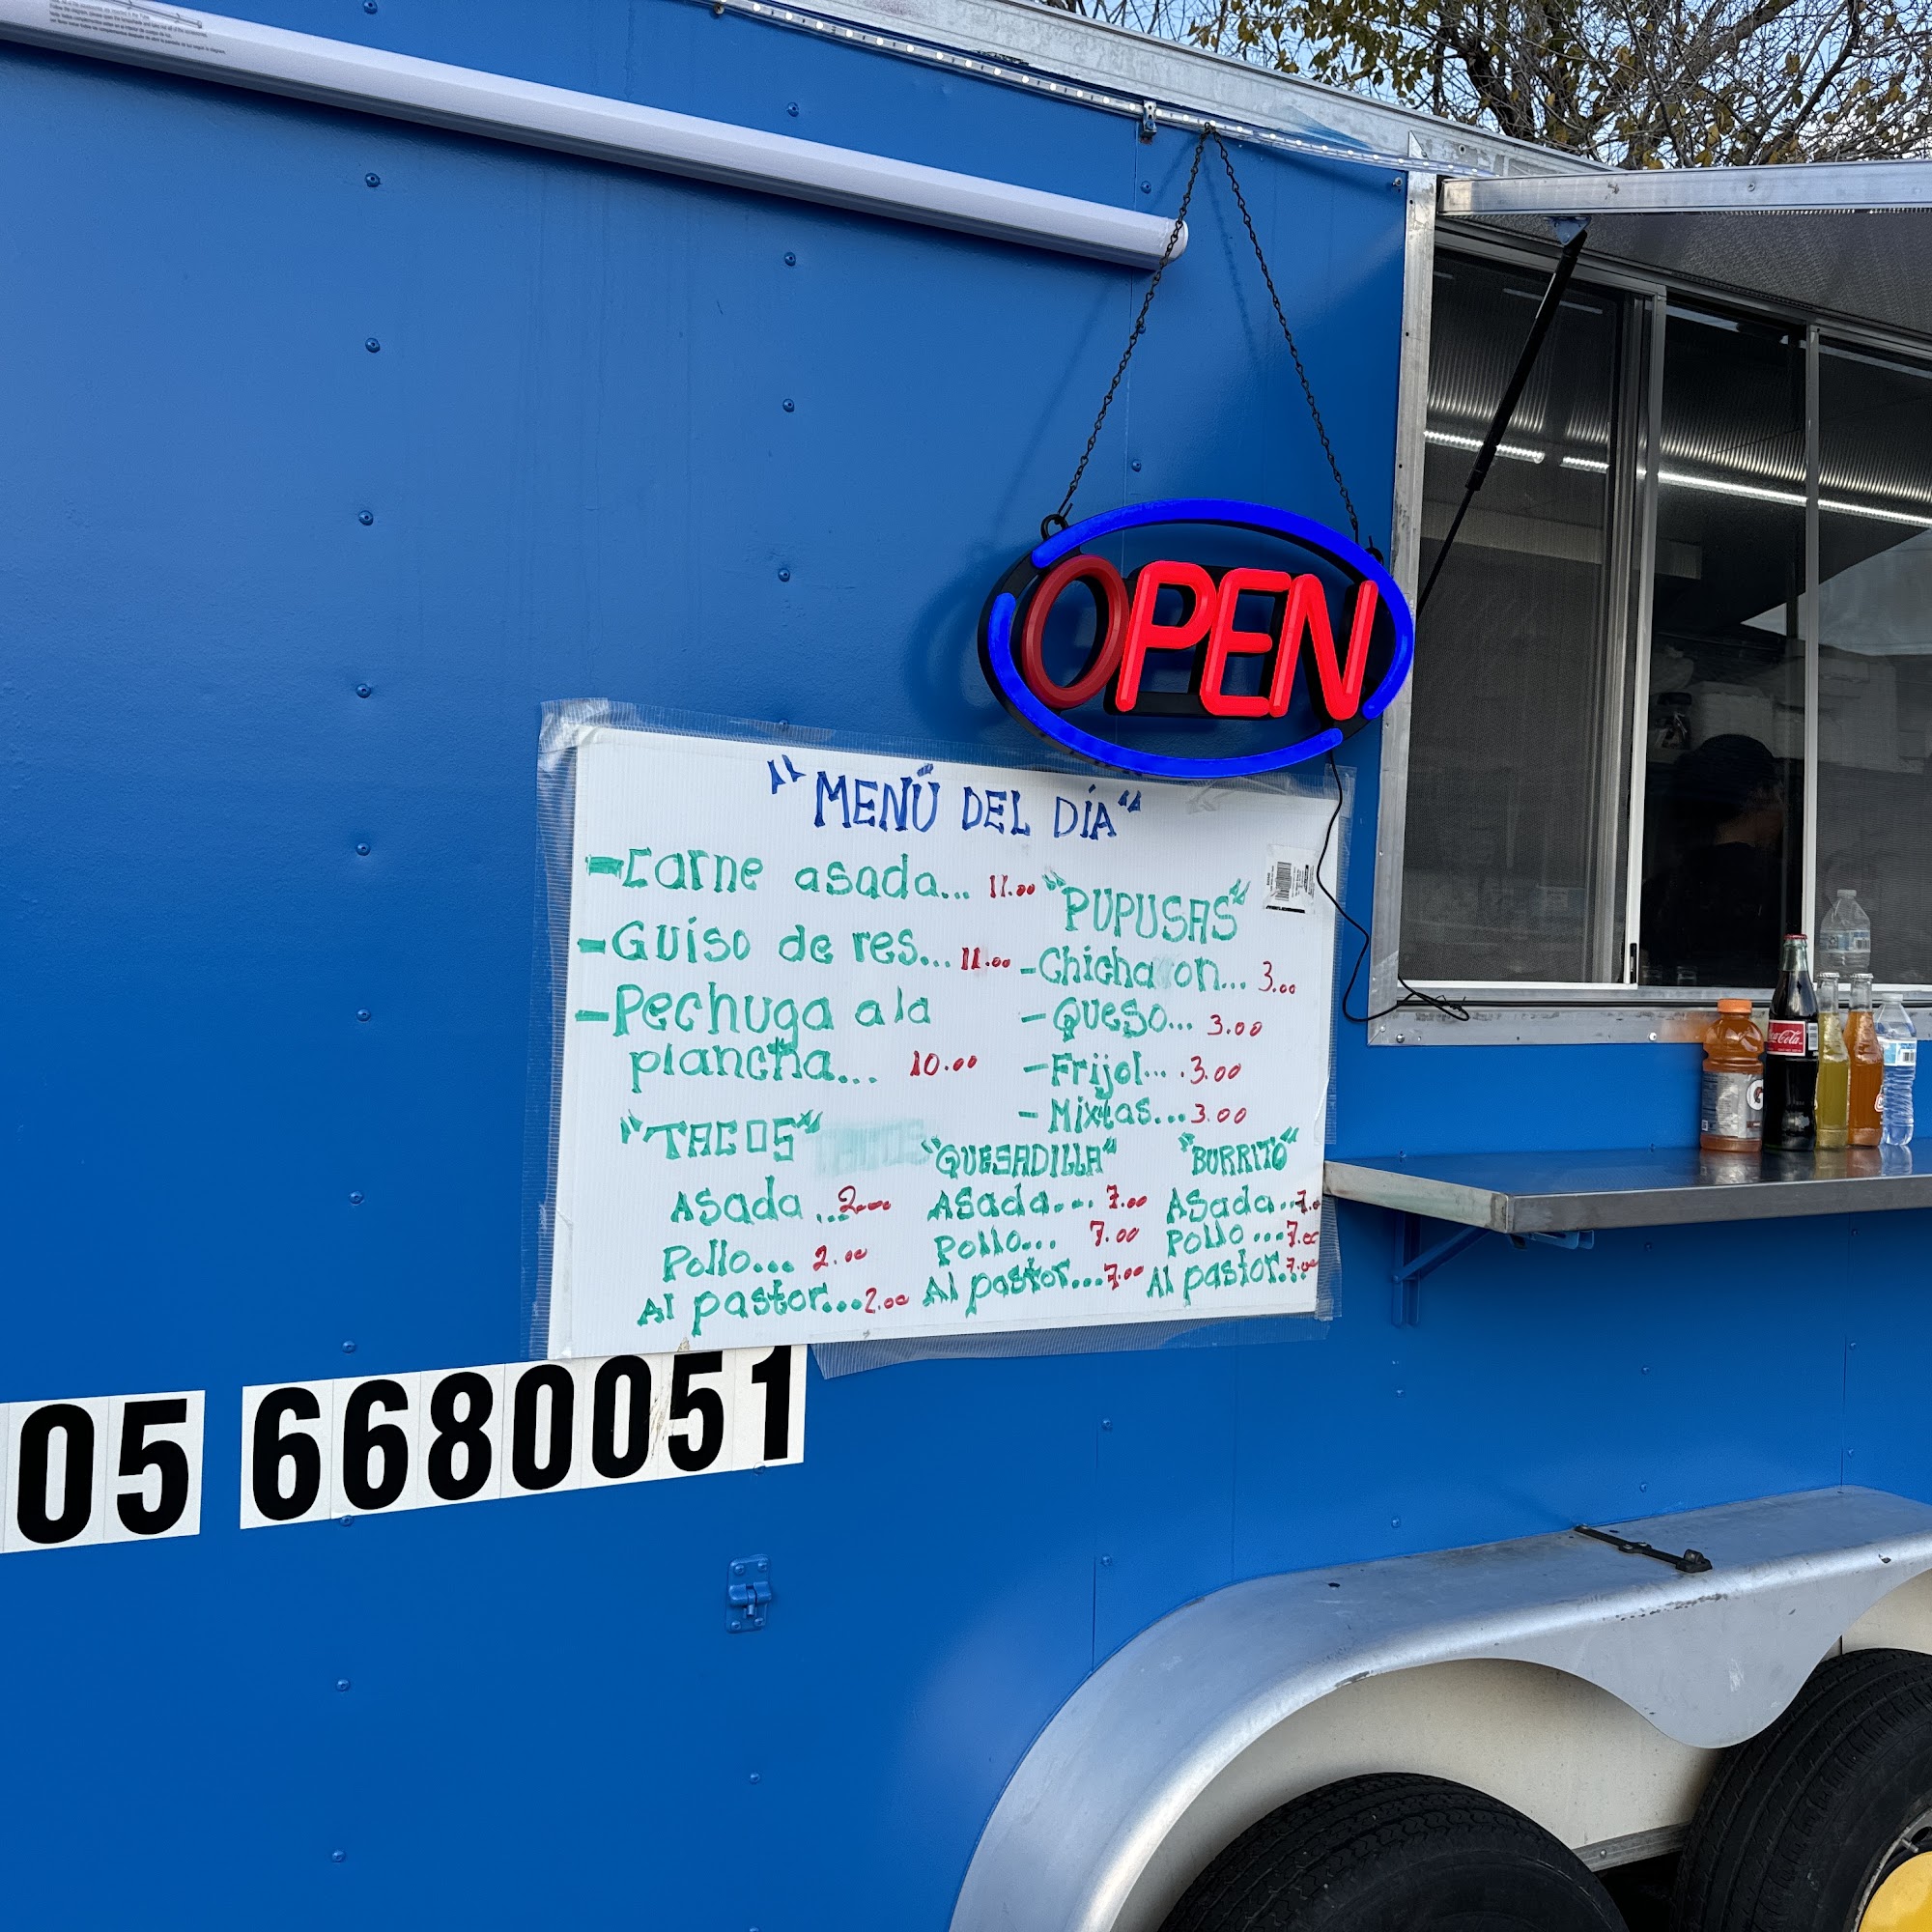 OPEN
"MENÚ DEL DÍA"
-Carne asada... 11.00
-Guiso de res... 11.00
-Pechuga a la
plancha... 10.00
"PUPUSAS"
-Chicha on... 3.00
-Queso... 3.00
-Frijol... 3.00
-Mixtas... 3.00
"TACOS"
Asada... 2.00
Pollo... 2.00
Al pastor... 2.00
"QUESADILLA"
Asada... 7.00
Pollo... 7.00
Al pastor... 7.00
"BURRITO"
Asada... 7.0
Pollo... 7.00
Al pastor... 7.00
05 6680051
Coca-Cola